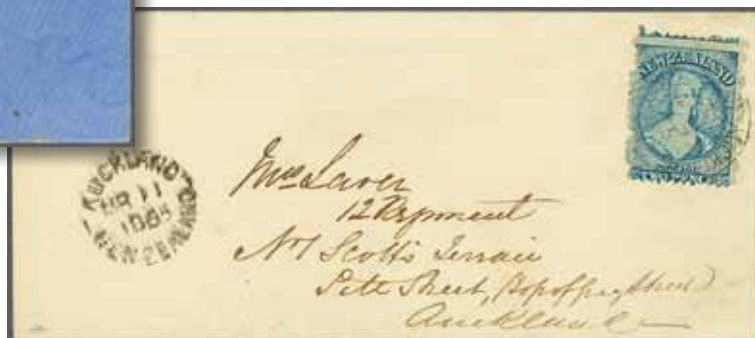 NEW ZEALAND
TWO PENCE
AUCKLAND
MR 11
1865
NEW ZEALAND
Mrs Laver
12 Regiment
No 1 Scott's Terrace
Pitt Street, (Top of
Auckland